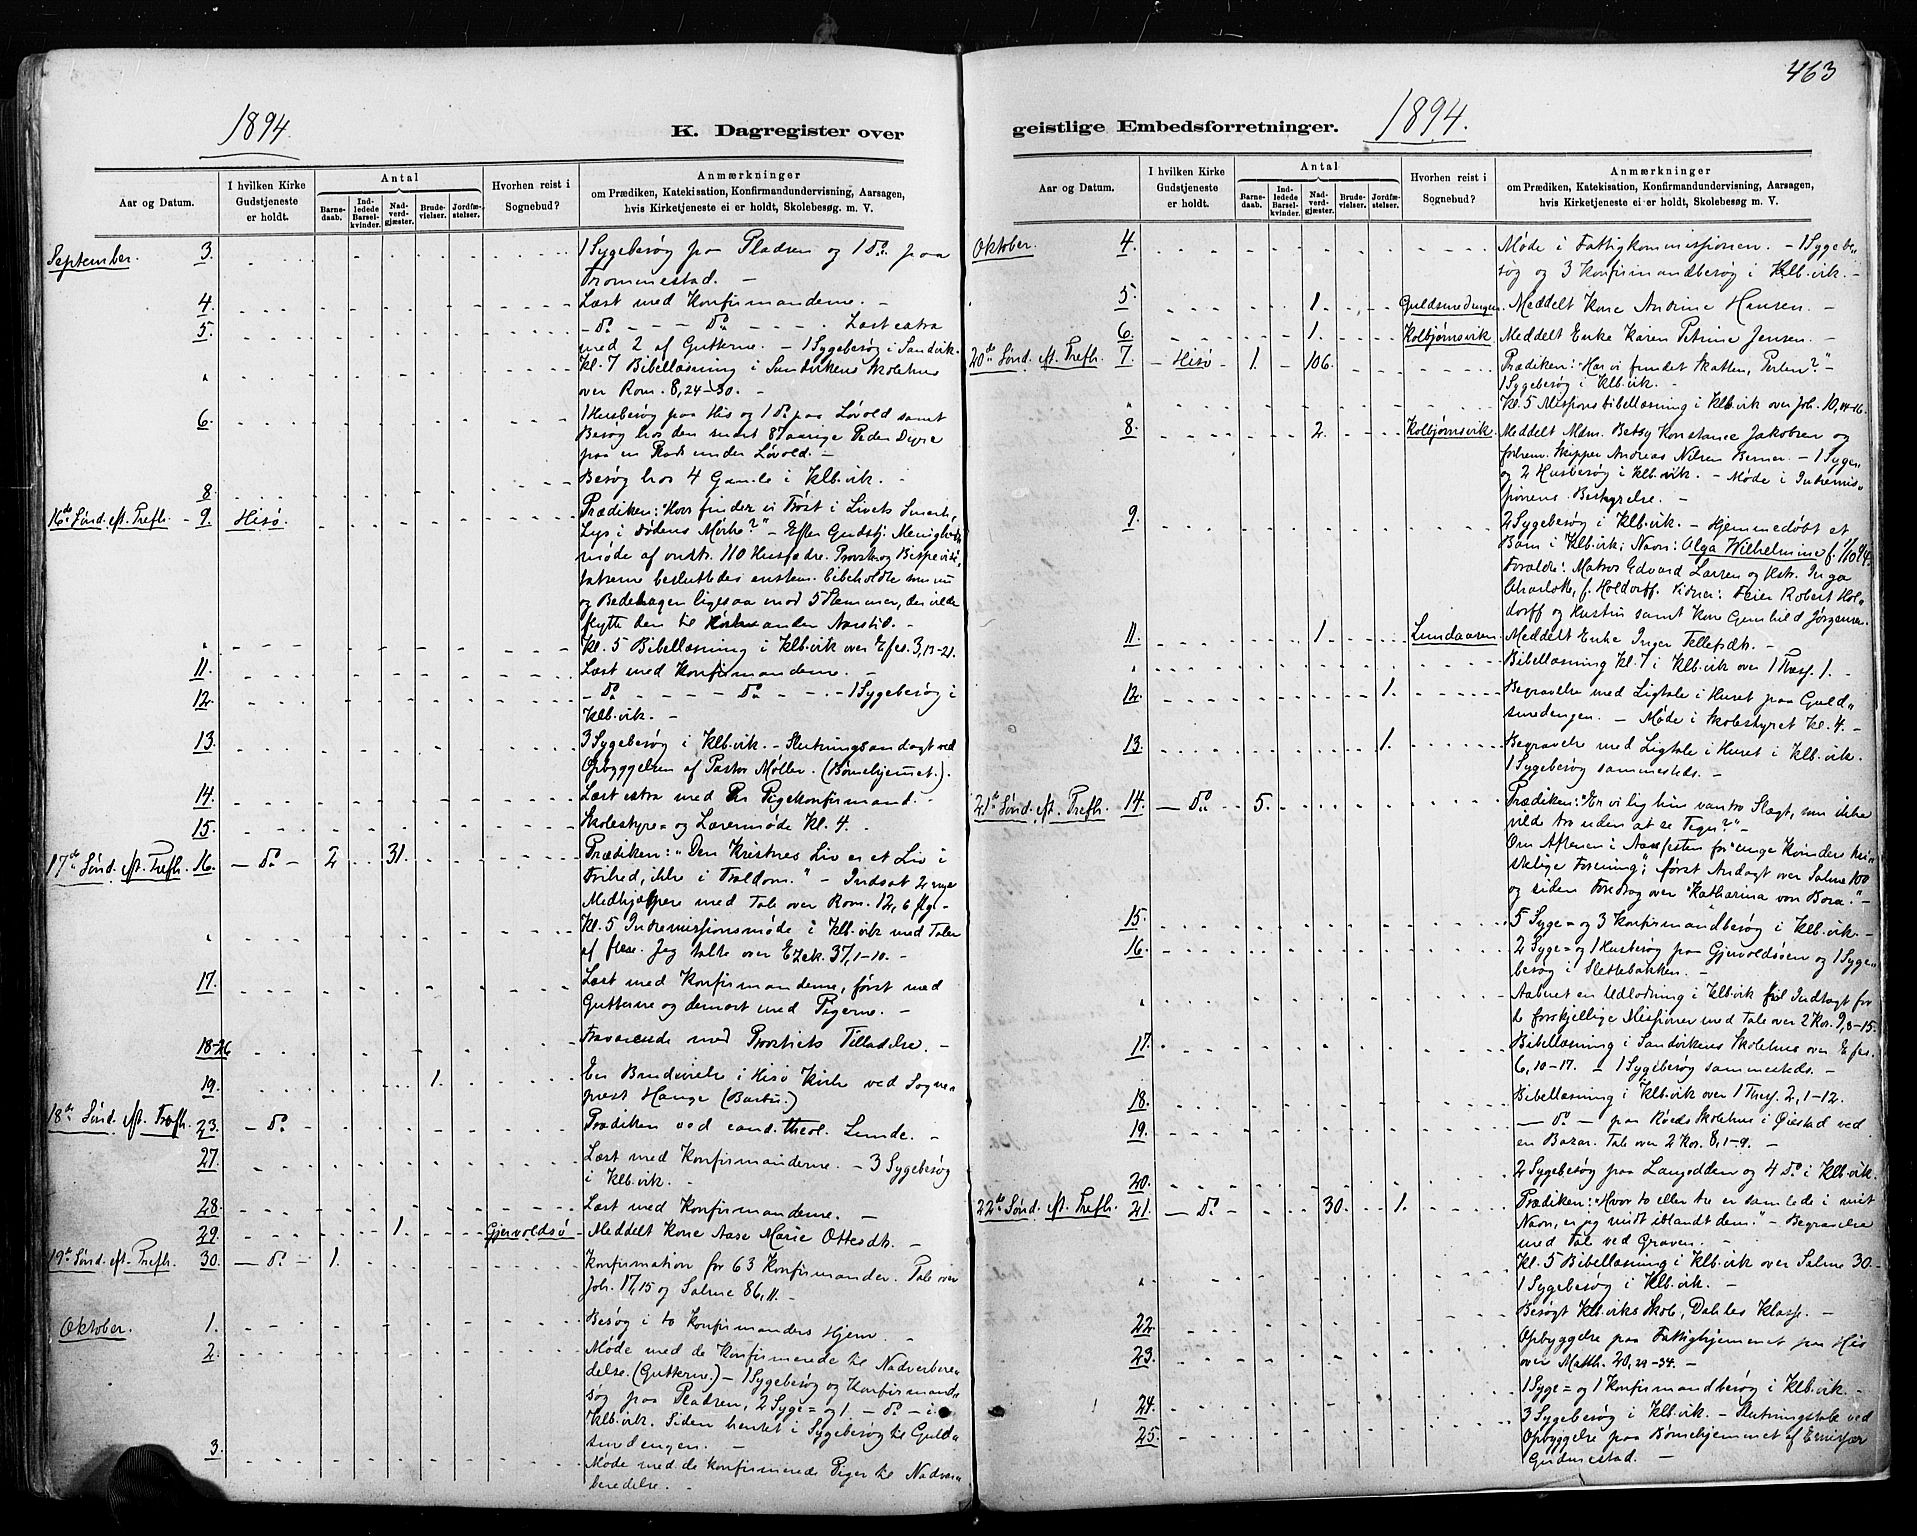 463
1894.
K. Dagregister over
Aar og Datum.
I hvilken Kirke Gudstjeneste er holdt.
Antal
Barnedaab.
Indledede Barselkvinder.
Nadverdgjæster.
Brudevielser.
Jordfæstelser.
Hvorhen reist i Sognebud?
Anmærkninger
om Prædiken, Katekisation, Konfirmandundervisning, Aarsagen,
hvis Kirketjeneste ei er holdt, Skolebesøg. m. V.
September 3. 1 Sygebesøg paa Pladsen og 1 do. paa
Trommestad. -
4. Læst med Konfirmanderne. -
5. - do. - - - do. - - - . Læst extra
med 2 af Gutterne. - 1 Sygebesøg i Sandvik.
" Kl. 7 Bibellæsning i Sandvikens Skolehus
over Rom. 8, 24-30. -
6. 1 Husbesøg paa His og 1 do. paa Løvold samt
Besøg hos den snart 87 aarige Peder
paa en Plads under Løvold. -
8. Besøg hos 4 Gamle i Klb.vik. -
16de Sønd. eft. Trefh. - 9. Hisø. Prædiken: "Hvor finder vi Trøst i Livets Smerte,
Lys i Dødens Mørke?" - Efter Gudstj. Menigheds-
møde af omtr. 110 Husfædre. Provsk. og Bispevisi-
tatserne besluttedes enstem. bibeholdte
og Bededagen ligesaa mod 5 Stemmer, der vilde
flytte den til anden Aarstid. -
" Kl. 5 Bibellæsning i Klb.vik over Efes. 3, 13-21.
11. Læst med Konfirmanderne. -
12. - do. - - - do. - . - 1 Sygebesøg i
Klb.vik. -
13. 3 Sygebesøg i Klb.vik. - Slutningsandagt ved
Opbyggelsen af Pastor Møller. (Børnehjemmet.).
14. Læst extra med Pigekonfirmand. -
15. Skolestyre= og Lærermøde Kl. 4. -
17de Sønd. eft. Trefh. 16. - do. - 2 31. Prædiken: "Den Kristnes Liv er et Liv i
Frihed, ikke i Trældom." - Indsat 2 nye
Medhjælpere med Tale over Rom. 12, 6 flg. -
" Kl. 5 Indremissionsmøde i Klb.vik med Taler
af flere. Jeg talte over Ezek. 37, 1-10. -
17. Læst med Konfirmanderne, først med
Gutterne og dernæst med Pigerne. -
18-26 Fraværende med Provstiets Tilladelse. -
19. 1. En Brudevielse i Hisø Kirke ved Sogne-
præst Hauge (Barbu.)
18de Sønd. eft. Trefh. 23. - do. Prædiken ved cand. theol. Lunde. -
27. Læst med Konfirmanderne. - 3 Sygebesøg
i Klb.vik. -
28. Læst med Konfirmanderne. -
29. 1. Gjervoldsø Meddelt Kone Aase Marie Ottesdt. -
19de Sønd. eft. Trefh. 30. - do. - 1. Konfirmation for 63 Konfirmander. Tale over
Joh. 17, 15 og Salme 86, 11. -
Oktober. 1. Besøg i to Konfirmanders Hjem. -
2. Møde med de Konfirmerede til Nadverbere-
delse. (Gutterne.) - 1 Sygebesøg og Konfirmand-
søg paa Pladsen, 2 Syge= og 1 - do - i
Klb.vik. Siden hentet i Sygebesøg til Guld-
smedengen. -
3. Møde med de konfirmerede Piger til Nadver-
beredelse. -
geistlige Embedsforretninger.
1894.
Aar og Datum.
I hvilken Kirke Gudstjeneste er holdt.
Antal
Barnedaab.
Indledede Barselkvinder.
Nadverdgjæster.
Brudevielser.
Jordfæstelser.
Hvorhen reist i Sognebud?
Anmærkninger
om Prædiken, Katekisation, Konfirmandundervisning, Aarsagen,
hvis Kirketjeneste ei er holdt, Skolebesøg m. V.
Oktober. 4. Møde i Fattigkommissionen. - 1 Sygebe-
søg og 3 Konfirmandbesøg i Klb.vik. -
5. 1. Guldsmedengen. Meddelt Kone Andrine Hansen. -
6. 1. Kolbjørnsvik Meddelt Enke Karen Petrine Jensen. -
20de Sønd. eft. Trefh. 7. - Hisø 1. 106. Prædiken: "Har vi fundet Skatten, Perlen?" -
1 Sygebesøg i Klb.vik. -
" Kl. 5 Missionsbibellæsning i Klb.vik over Joh. 10, 14-16.
8. 2. Kolbjørnsvik. Meddelt Mdm. Betsy Konstance Jakobsen og
forhenv. Skipper Andreas Nilsen Berner. - 1 Syge-
og 2 Husbesøg i Klb.vik. - Møde i Indremis-
sionens Bestyrelse. -
9. 2 Sygebesøg i Klb.vik. - Hjemmedøbt et
Barn i Klb.vik; Navn: Olga Wilhelmine f. 1/10 94.
Forældre: Matros Edvard Larsen og Hstr. Inga
Charlotte, f. Holdorff. Vidner: Feier Robert Hol-
dorff og Hustru samt Kone Gunhild Jørgensen.
11. 1 Lundaaven Meddelt Enke Inger Tellefsdt. -
" Bibellæsning Kl. 7 i Klb.vik over 1 Thess. 1. -
12. 1. Begravelse med Ligtale i Huset paa Guld-
smedengen. - Møde i Skolestyret Kl. 4. -
13. 1. Begravelse med Ligtale i Huset i Klb.vik.
1 Sygebesøg sammesteds. -
21de Sønd. eft. Trefh. 14. - do. 5. Prædiken: "Er vi lig hin vantro Slægt, som ikke
vilde tro uden at se Tegn?" -
Om Aftenen i Aarsfesten for "unge Kvinders kri-
stelige Forening"; først Andagt over Salme 100
og siden Foredrag over "Katharina von Bora." -
15. 5 Syge= og 3 Konfirmandbesøg i Klb.vik. -
16. 2 Syge= og 1 Husbesøg paa Gjervoldsøen og 1 Syge-
besøg i Slettebakken. -
" Aabnet en Udlodning i Klb.vik til Indtægt for
de forskjellige Missioner med Tale over 2 Kor. 9, 8-15.
17. Bibellæsning i Sandvikens Skolehus over Efes.
6, 10-17. - 1 Sygebesøg sammesteds. -
18. Bibellæsning i Klb.vik over 1 Thess. 2, 1-12.
19. - do. - paa Røeds Skolehus i Øiestad ved
en Bazar. Tale over 2 Kor. 8, 1-9. -
20. 2 Sygebesøg paa Langodden og 4 do. i Klb.vik.
22de Sønd. eft. Trefh. 21. - do. 30. 1. Prædiken: "Hvor to eller tre er samlede i mit
Navn, er jeg midt iblandt dem." - Begravelse
med Tale ved Graven. -
" Kl. 5 Bibellæsning i Klb.vik over Salme 30. -
1 Sygebesøg i Klb.vik. -
22. Besøgt Klb.viks Skole, Dahles Klasse. -
23. Opbyggelse paa Fattighjemmet paa His
over Matth. 20, 29-34. -
24. 1 Syge= og 1 Konfirmandbesøg i Klb.vik. -
25. 3 Sygebesøg i Klb.vik. - Slutningstale ved
Opbyggelse paa Børnehjemmet af Emissær
Gudmestad. -